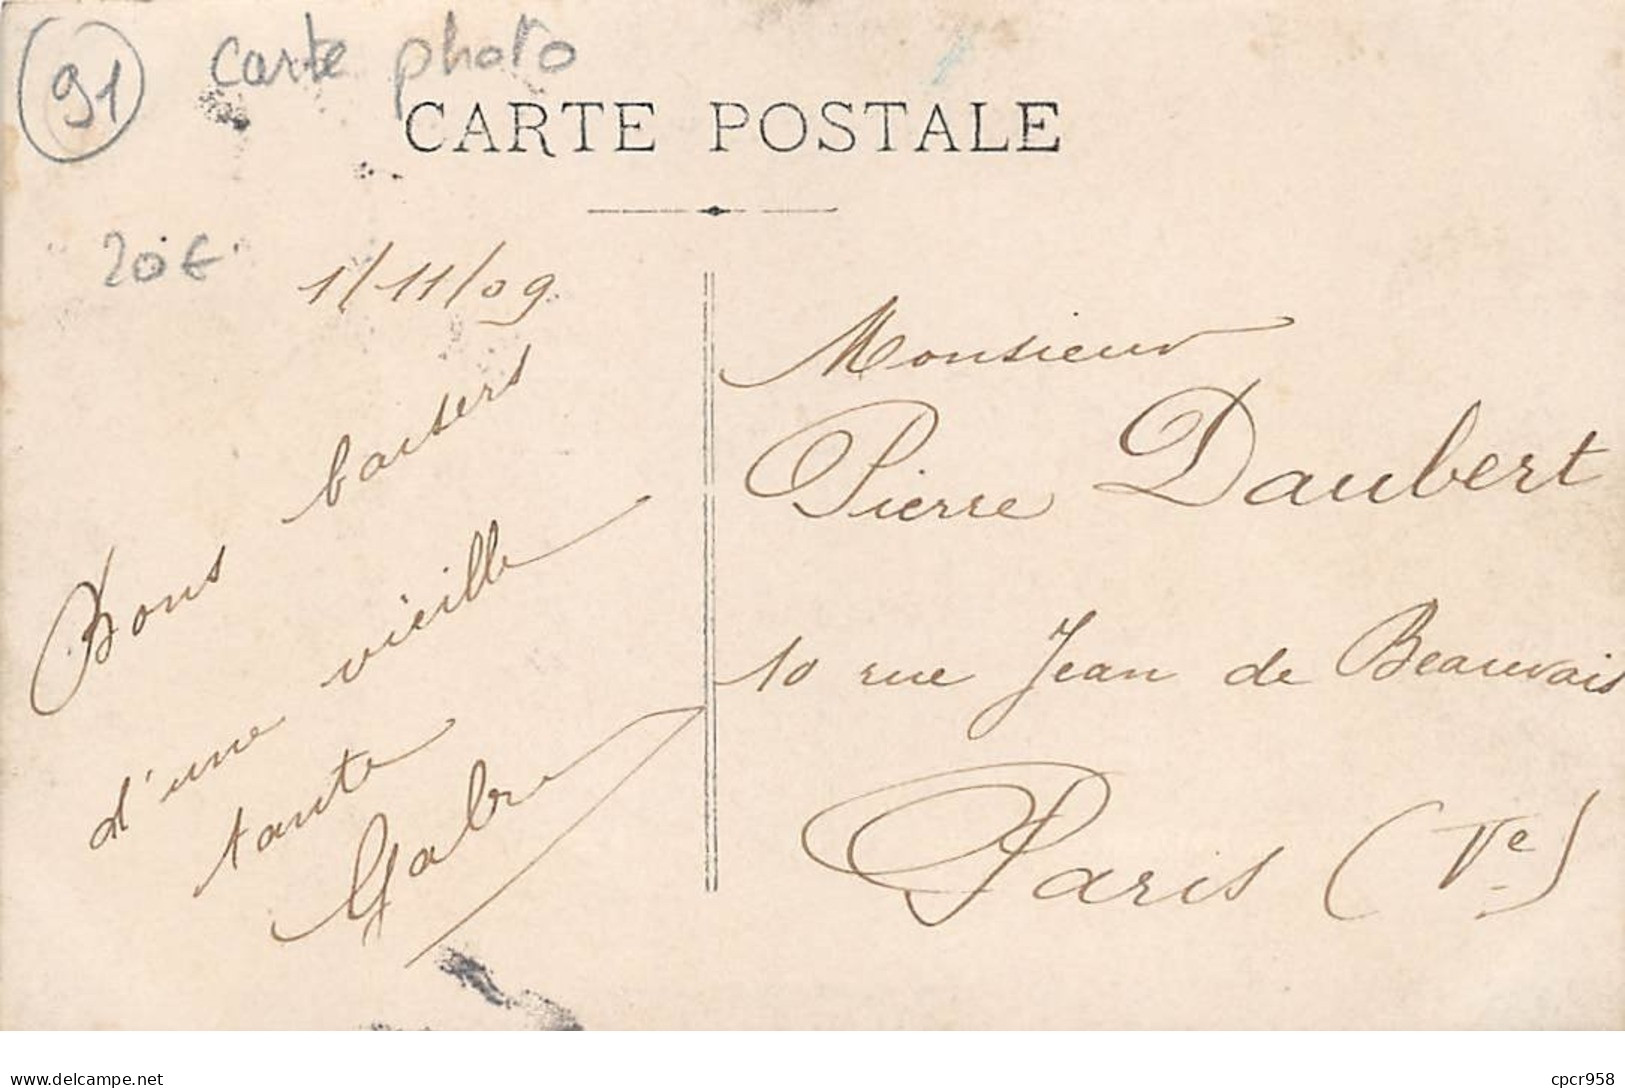 91
carte photo
CARTE POSTALE
20 €
1/11/09
Bons baisers
d'une vieille
tante
Monsieur
Pierre Daubert
10 rue Jean de Beauvais
Paris (Ve)
delcampe.net
cpcr958